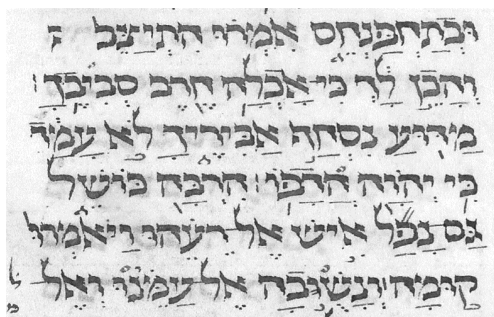 וּבְתַחְפַּנְחֵס אִמְרוּ הִתְיַצֵּב
וְהָכֵן לָךְ כִּי־אָכְלָה חֶרֶב סְבִיבֶיךָ׃
מַדּוּעַ נִסְחַף אַבִּירֶיךָ לֹא עָמַד
כִּי יְהוָה הֲדָפוֹ׃ הִרְבָּה כּוֹשֵׁל
גַּם־נָפַל אִישׁ אֶל־רֵעֵהוּ וַיֹּאמְרוּ
קוּמָה וְנָשֻׁבָה אֶל־עַמֵּנוּ וְאֶל